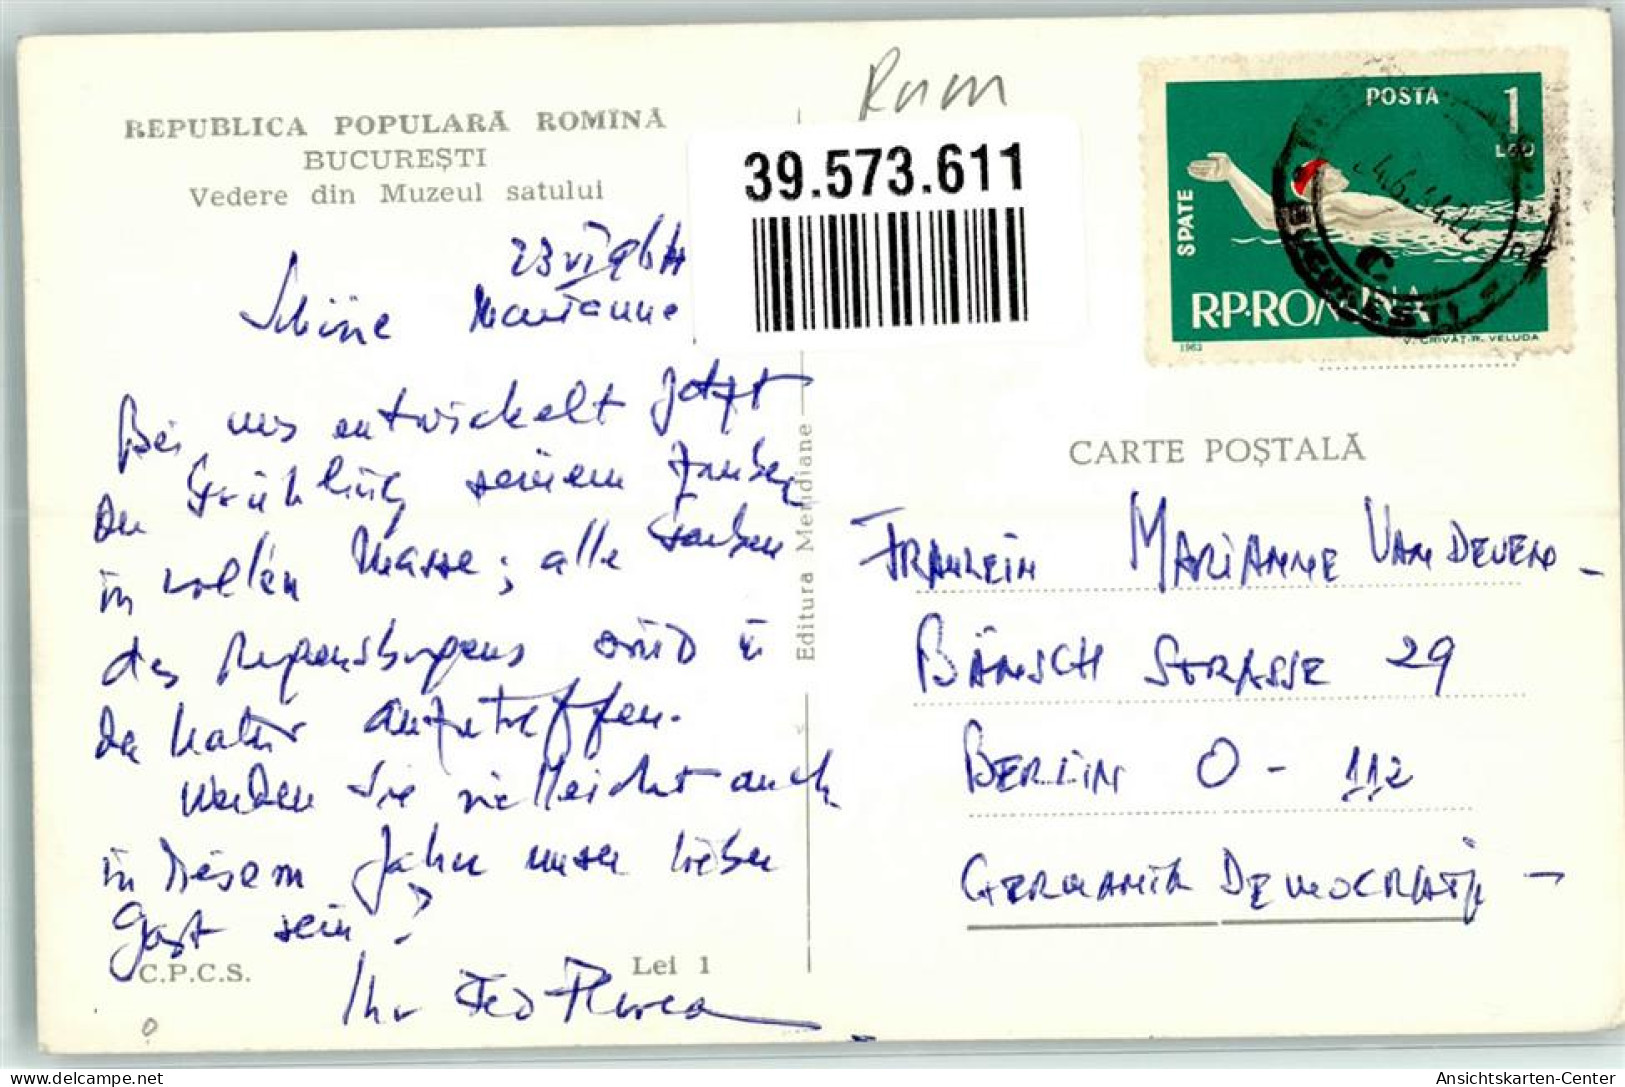 REPUBLICA POPULARĂ ROMÎNĂ
BUCUREȘTI
Vedere din Muzeul satului
Rum
39.573.611
POSTA
1
LEU
SPATE
R.P.ROMINA
1963
V. GRIVAT-R. VELUDA
BUCUREȘTI
23 VI 964
Schöne Marianne
Bei uns entwickelt jetzt
der Frühling seinem Zauber
in vollen Masse; alle Farben
des Regensbogens sind in
der Natur anzutreffen.
Werden Sie vielleicht auch
in diesem Jahr unser lieber
Gast sein?
Ihr Teo Florea
C.P.C.S.
Lei 1
Editura Meridiane
CARTE POȘTALĂ
FRAULEIN MARIANNE VAN DEVEN-
BÄNSCH STRASSE 29
BERLIN O - 112
GERMANIA DEMOCRATĂ -
Ansichtskarten-Center